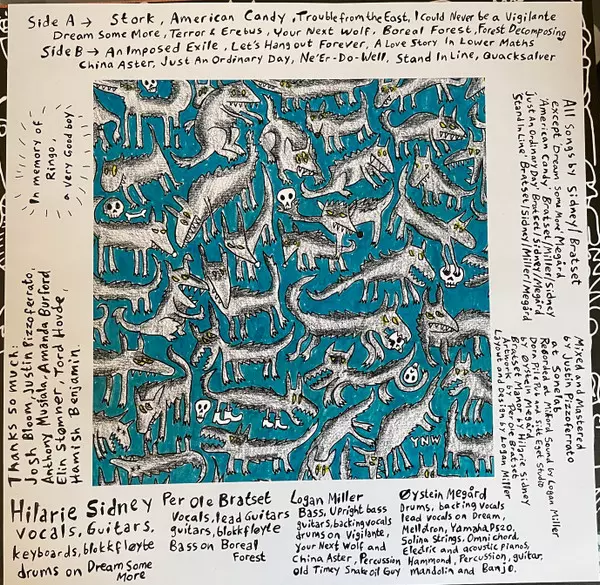 Side A → Stork, American Candy, Trouble from the East, I Could Never be a Vigilante
Dream Some More, Terror & Erebus, Your Next Wolf, Boreal Forest, Forest Decomposing
Side B → An Imposed Exile, Let's Hang out Forever, A Love Story In Lower Maths
China Aster, Just An Ordinary Day, Ne'Er-Do-Well, Stand In Line, Quacksalver
In memory of
Ringo,
a very Good boy
All songs by Sidney/Bratset
except Dream Some More Megård
American Candy Bratset/Miller/Sidney
Just An Ordinary Day Bratset/Sidney/Megård
Stand In Line Bratset/Sidney/Miller/Megård
Mixed and Mastered
by Justin Pizzoferrato
at Sonelab
Recorded at Milford Sound by Logan Miller
Dora, Pile Pub and Silk Esel Studio
by Øystein Megård
Bratset Manor + Hilarie Sidney
Artwork by Per Ole Bratset
Layout and Design by Logan Miller
Thanks so much:
Josh Bloom, Justin Pizzoferrato,
Anthony Musiala, Amanda Burford
Elin Stomner, Tord Hovde,
Hamish Benjamin
YNW
Hilarie Sidney
vocals, Guitars,
keyboards, blokkfløyte
drums on Dream Some
More
Per Ole Bratset
Vocals, lead Guitars
guitars, blokkfløyte
Bass on Boreal
Forest
Logan Miller
Bass, Upright bass
guitars, backing vocals
drums on Vigilante,
Your Next Wolf and
China Aster, Percussion
Old Timey Snake oil Guy
Øystein Megård
Drums, backing vocals
lead vocals on Dream,
Mellotron, Yamaha PS20,
Solina Strings, Omnichord,
Electric and acoustic pianos,
Hammond, Percussion, guitar,
mandolin and Banjo.